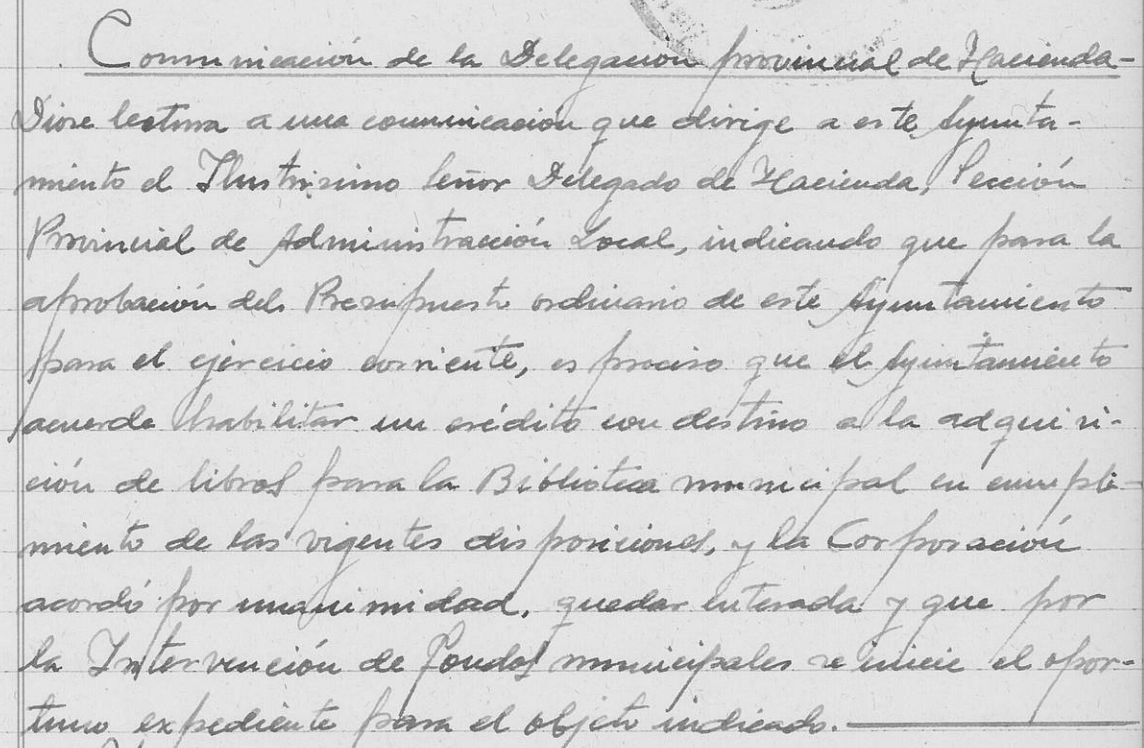 Comunicación de la Delegacion provincial de Hacienda-
Diose lectura a una comunicacion que dirige a este Ayunta-
miento el Ilustrisimo Señor Delegado de Hacienda, Sección
Provincial de Administración Local, indicando que para la
aprobación del Presupuesto ordinario de este Ayuntamiento
para el ejercicio corriente, es preciso que el Ayuntamiento
acuerde habilitar un crédito con destino a la adquisi-
ción de libros para la Biblioteca municipal en cumpli-
miento de las vigentes disposiciones, y la Corporación
acordó por unanimidad, quedar enterada y que por
la Intervención de Fondos municipales se inicie el opor-
tuno expediente para el objeto indicado.